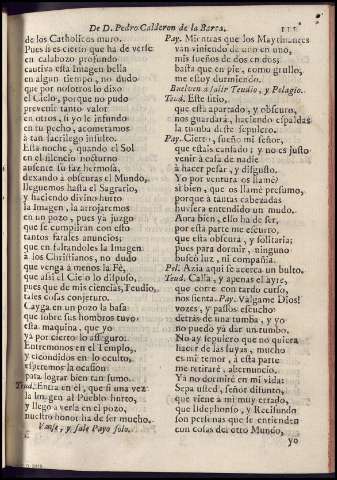 De D. Pedro Calderon de la Barca.
111
de los Catholicos muro.
Pues si es cierto que ha de verse
en calabozo profundo
cautiva esta Imagen bella
en algun tiempo, no dudo
que por nosotros lo dixo
el Cielo, porque no pudo
prevenir tanto valor
en otros, si yo le infundo
en tu pecho, acometamos
à tan sacrilego insulto.
Esta noche, quando el Sol
en el silencio nocturno
ausente su faz hermosa,
dexando à obscuras el Mundo,
lleguemos hasta el Sagrario,
y haciendo divino hurto
la Imagen, la arrojaremos
en un pozo, pues ya juzgo
que se cumpliràn con esto
tantos fatales anuncios;
que en faltandoles la Imagen
à los Christianos, no dudo
que venga à menos la Fè,
que assi el Cielo lo dispuso,
pues que de mis ciencias, Teudio,
tales cosas conjeturo.
Cayga en un pozo la basa
que sobre sus hombros tuvo
esta maquina, que yo
ya por cierto lo asseguro.
Entremonos en el Templo,
y escondidos en lo oculto,
esperemos la ocasion
para lograr bien tan sumo.
Teud. Entra en el, que si una vez
la Imagen al Pueblo hurto,
y llego à verla en el pozo,
nuestro honor ha de ser mucho.
Vanse, y sale Payo solo.
Pay. Mientras que los Maytinantes
van viniendo de uno en uno,
mis sueños de dos en dos;
basta que en pie, como grullo,
me estoy durmiendo.
Buelven à salir Teudio, y Pelagio.
Teud. Este sitio,
que està apartado, y obscuro,
nos guardarà, haciendo espaldas
la tumba deste sepulcro.
Pay. Cierto, sueño mi señor,
que estais cansado; y no es justo
venir à casa de nadie
à hacer pesar, y disgusto.
Yo por ventura os llamè?
si bien, que os llamè presumo,
porque à tantas cabezadas
huviera entendido un mudo.
Aora bien, ello ha de ser,
por esta parte me escurro,
que està obscura, y solitaria;
pues para dormir, ninguno
buscò luz, ni compañia.
Pel. Azia aqui se acerca un bulto.
Teud. Calla, y apenas el ayre,
que corre con tardo curso,
nos sienta. Pay. Valgame Dios!
vozes, y passos escucho
detràs de una tumba, y yo
no puedo ya dar un tumbo.
No ay sepulcro que no quiera
hacer de las suyas, mucho
es mi temor, à esta parte
me retirarè, abernuncio.
Ya no dormirè en mi vida:
Sepa usted, señor difunto,
que viene à mi muy errado,
que Ildephonso, y Recisundo
son personas que se entienden
con cosas del otro Mundo,
yo